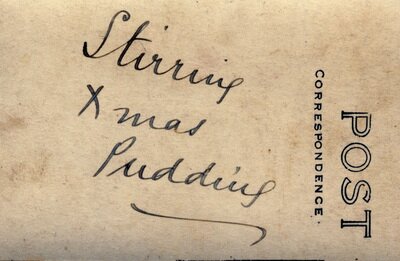 Stirring
Xmas
Pudding
POST
CORRESPONDENCE.